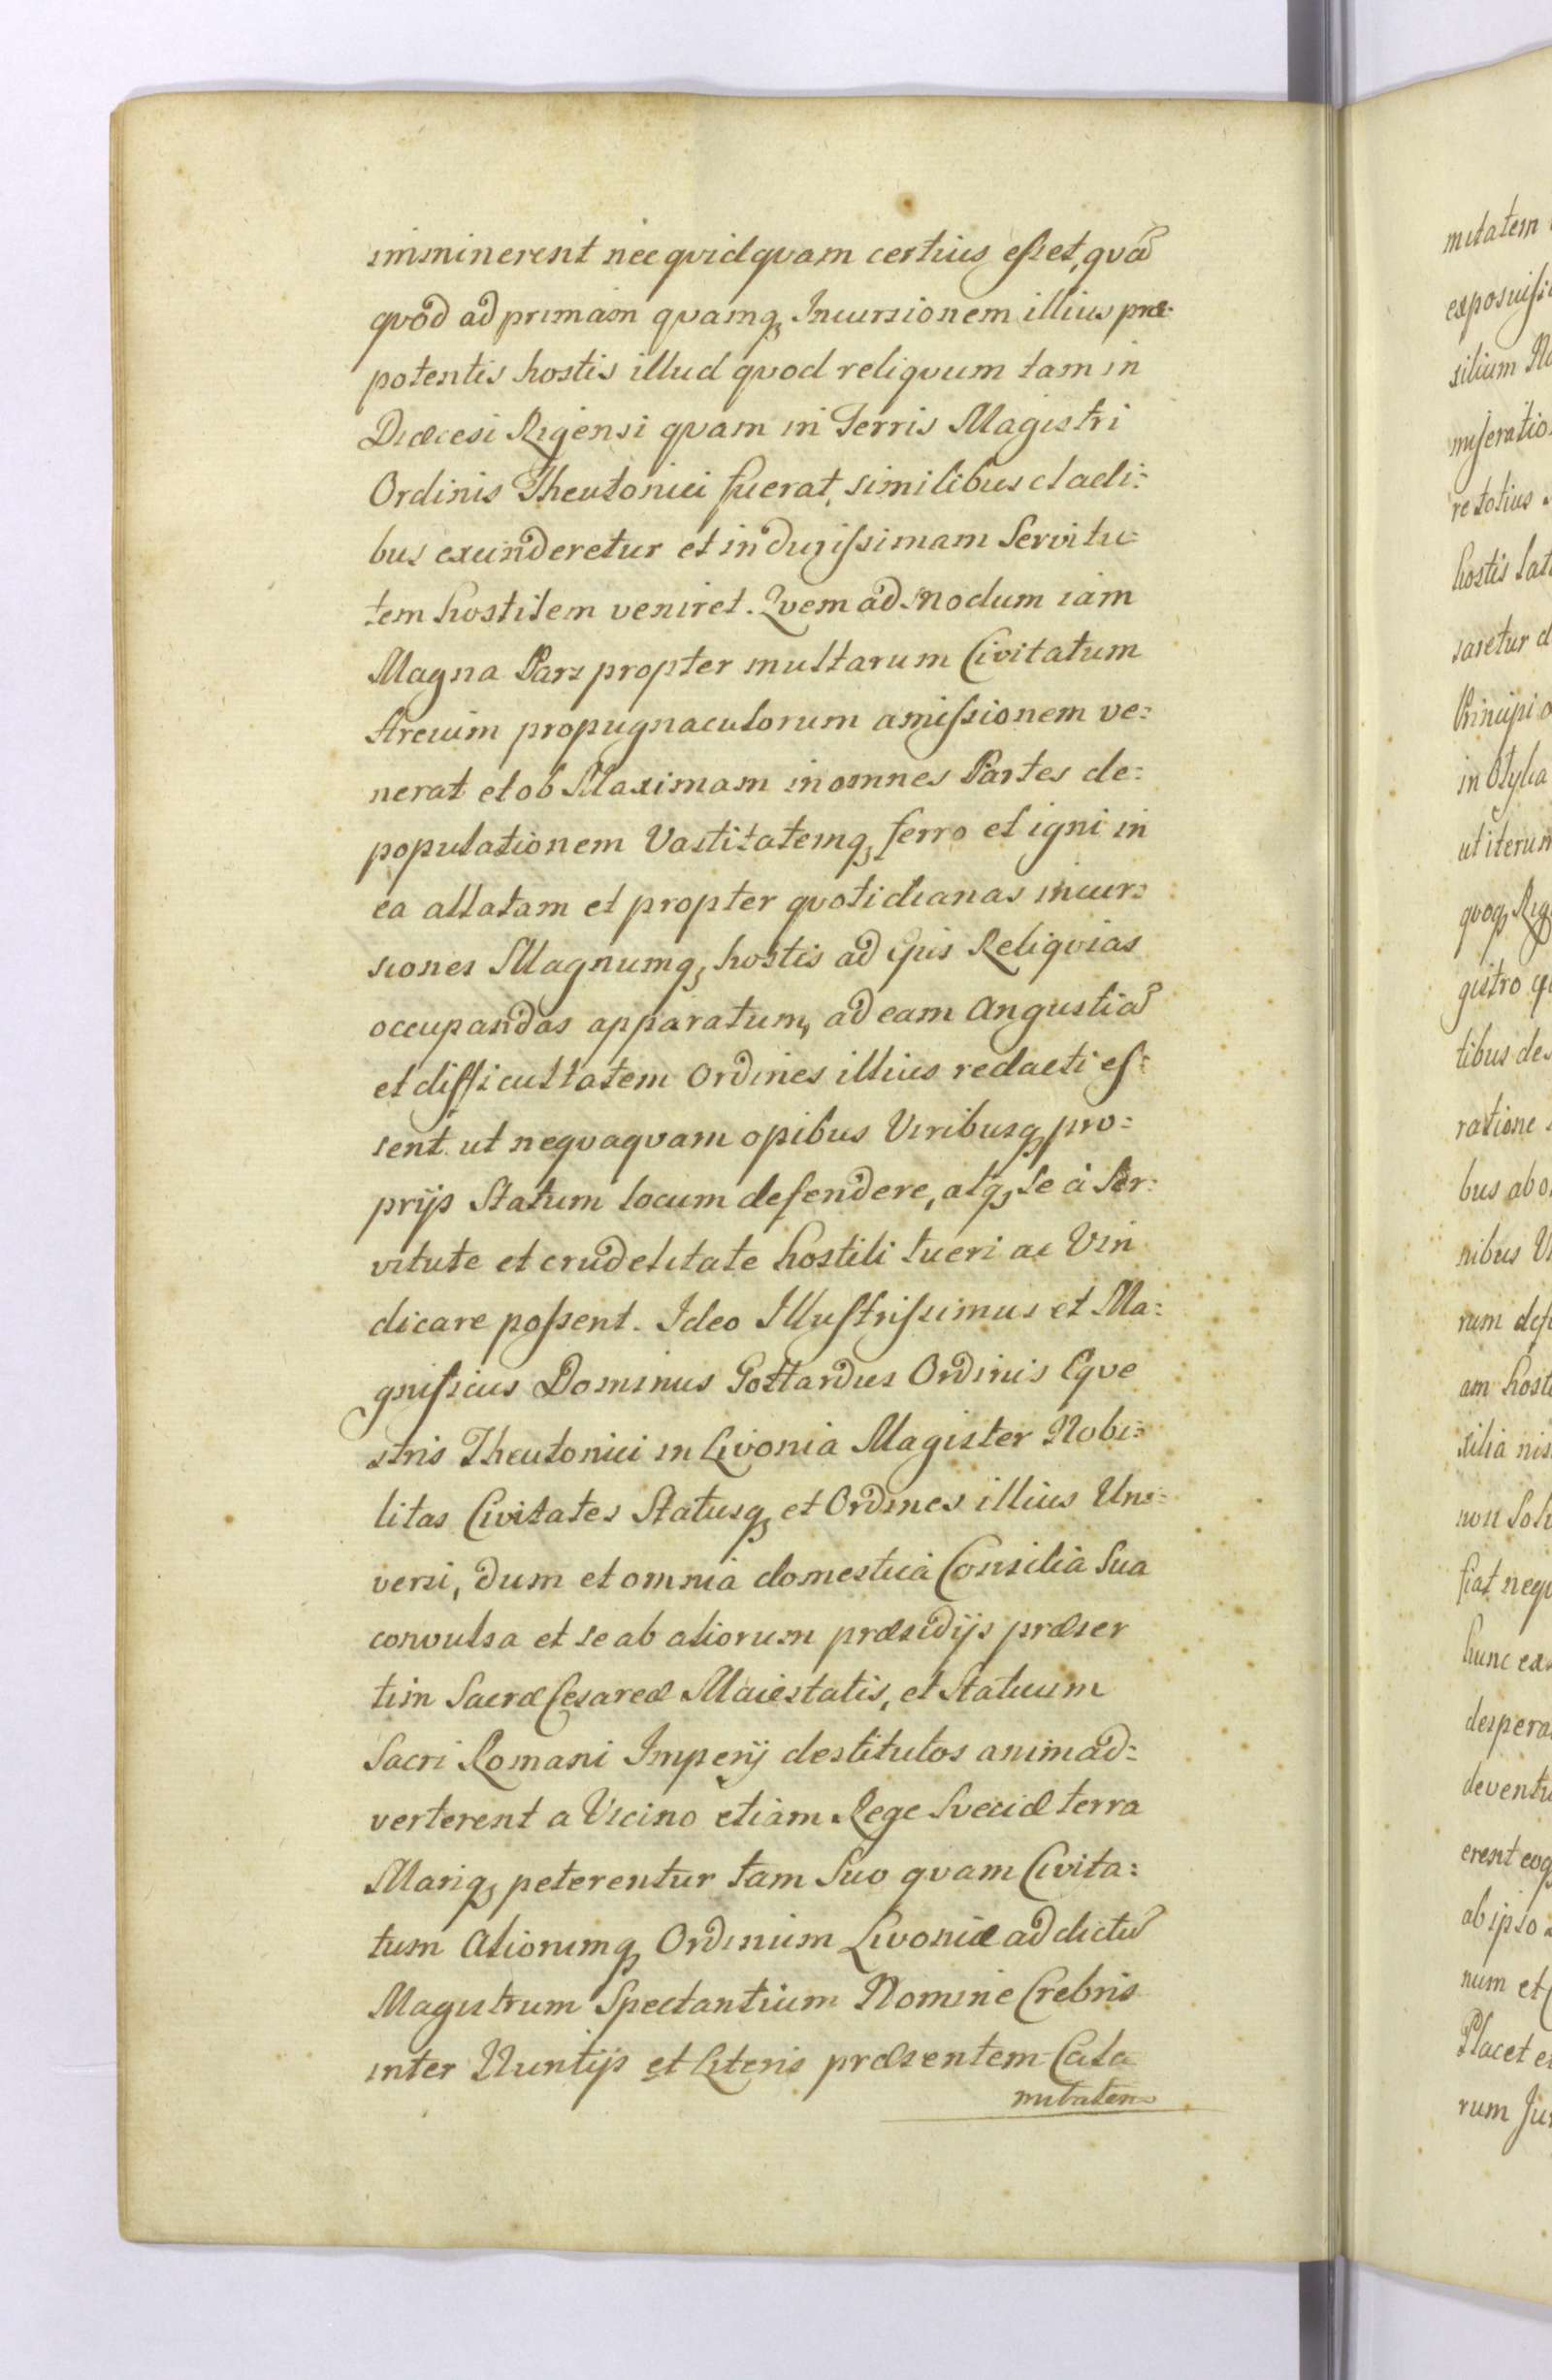 imminerent nec qvidqvam certius eſset, qvã
qvod ad primam qvamq, Incursionem illius præ-
potentis hostis illud qvod reliqvum tam in
Diæcesi Rigensi qvam in Terris Magistri
Ordinis Theutonici fuerat, similibus cladi:
bus exscinderetur et in duriſsimam Servitu:
tem hostilem veniret. Qvem ad modum iam
Magna Pars propter multarum Civitatum
Arcium propugnaculorum amiſsionem ve:
nerat et ob Maximam in omnes Partes de:
populationem Vastitatemq, ferro et igni in
ea allatam et propter qvotidianas incur:
siones Magnumq, hostis ad ejus Reliqvias
occupandas apparatum, ad eam Angustiã
et difficultatem Ordines illius redacti eſ:
sent. ut neqvaqvam opibus Viribusq, pro:
prijs Statum locum defendere, atq, se à Ser:
vitute et crudelitate hostili tueri ac Vin
dicare poſsent. Ideo Illuſtriſsimus et Ma:
gnificus Dominus Gottardus Ordinis Eqve
stris Theutonici in Livonia Magister Nobi:
litas Civitates Statusq, et Ordines illius Uni:
versi, dum et omnia domestica Consilia Sua
convulsa et se ab aliorum præsidijs præser
tim Sacræ Cesareæ Maiestatis, et Statuum
Sacri Romani Imperij destitutos animad:
verterent a Vicino etiam Rege Sveciæ terra
Mariq, peterentur tam Suo qvam Civita:
tum Aliorumq, Ordinum Livoniæ ad dictũ
Magistrum Spectantium Nomine Crebris
inter Nuntijs et Literis præsentem Cala
mitatem
mitatem
silium
re totius
hostis
saretur
Principi
ut iterum
qvoq,
gistro
tibus
ratione
bus
nibus
rum
am
non
fiat
hunc
ab ipso
num et
Placet
rum